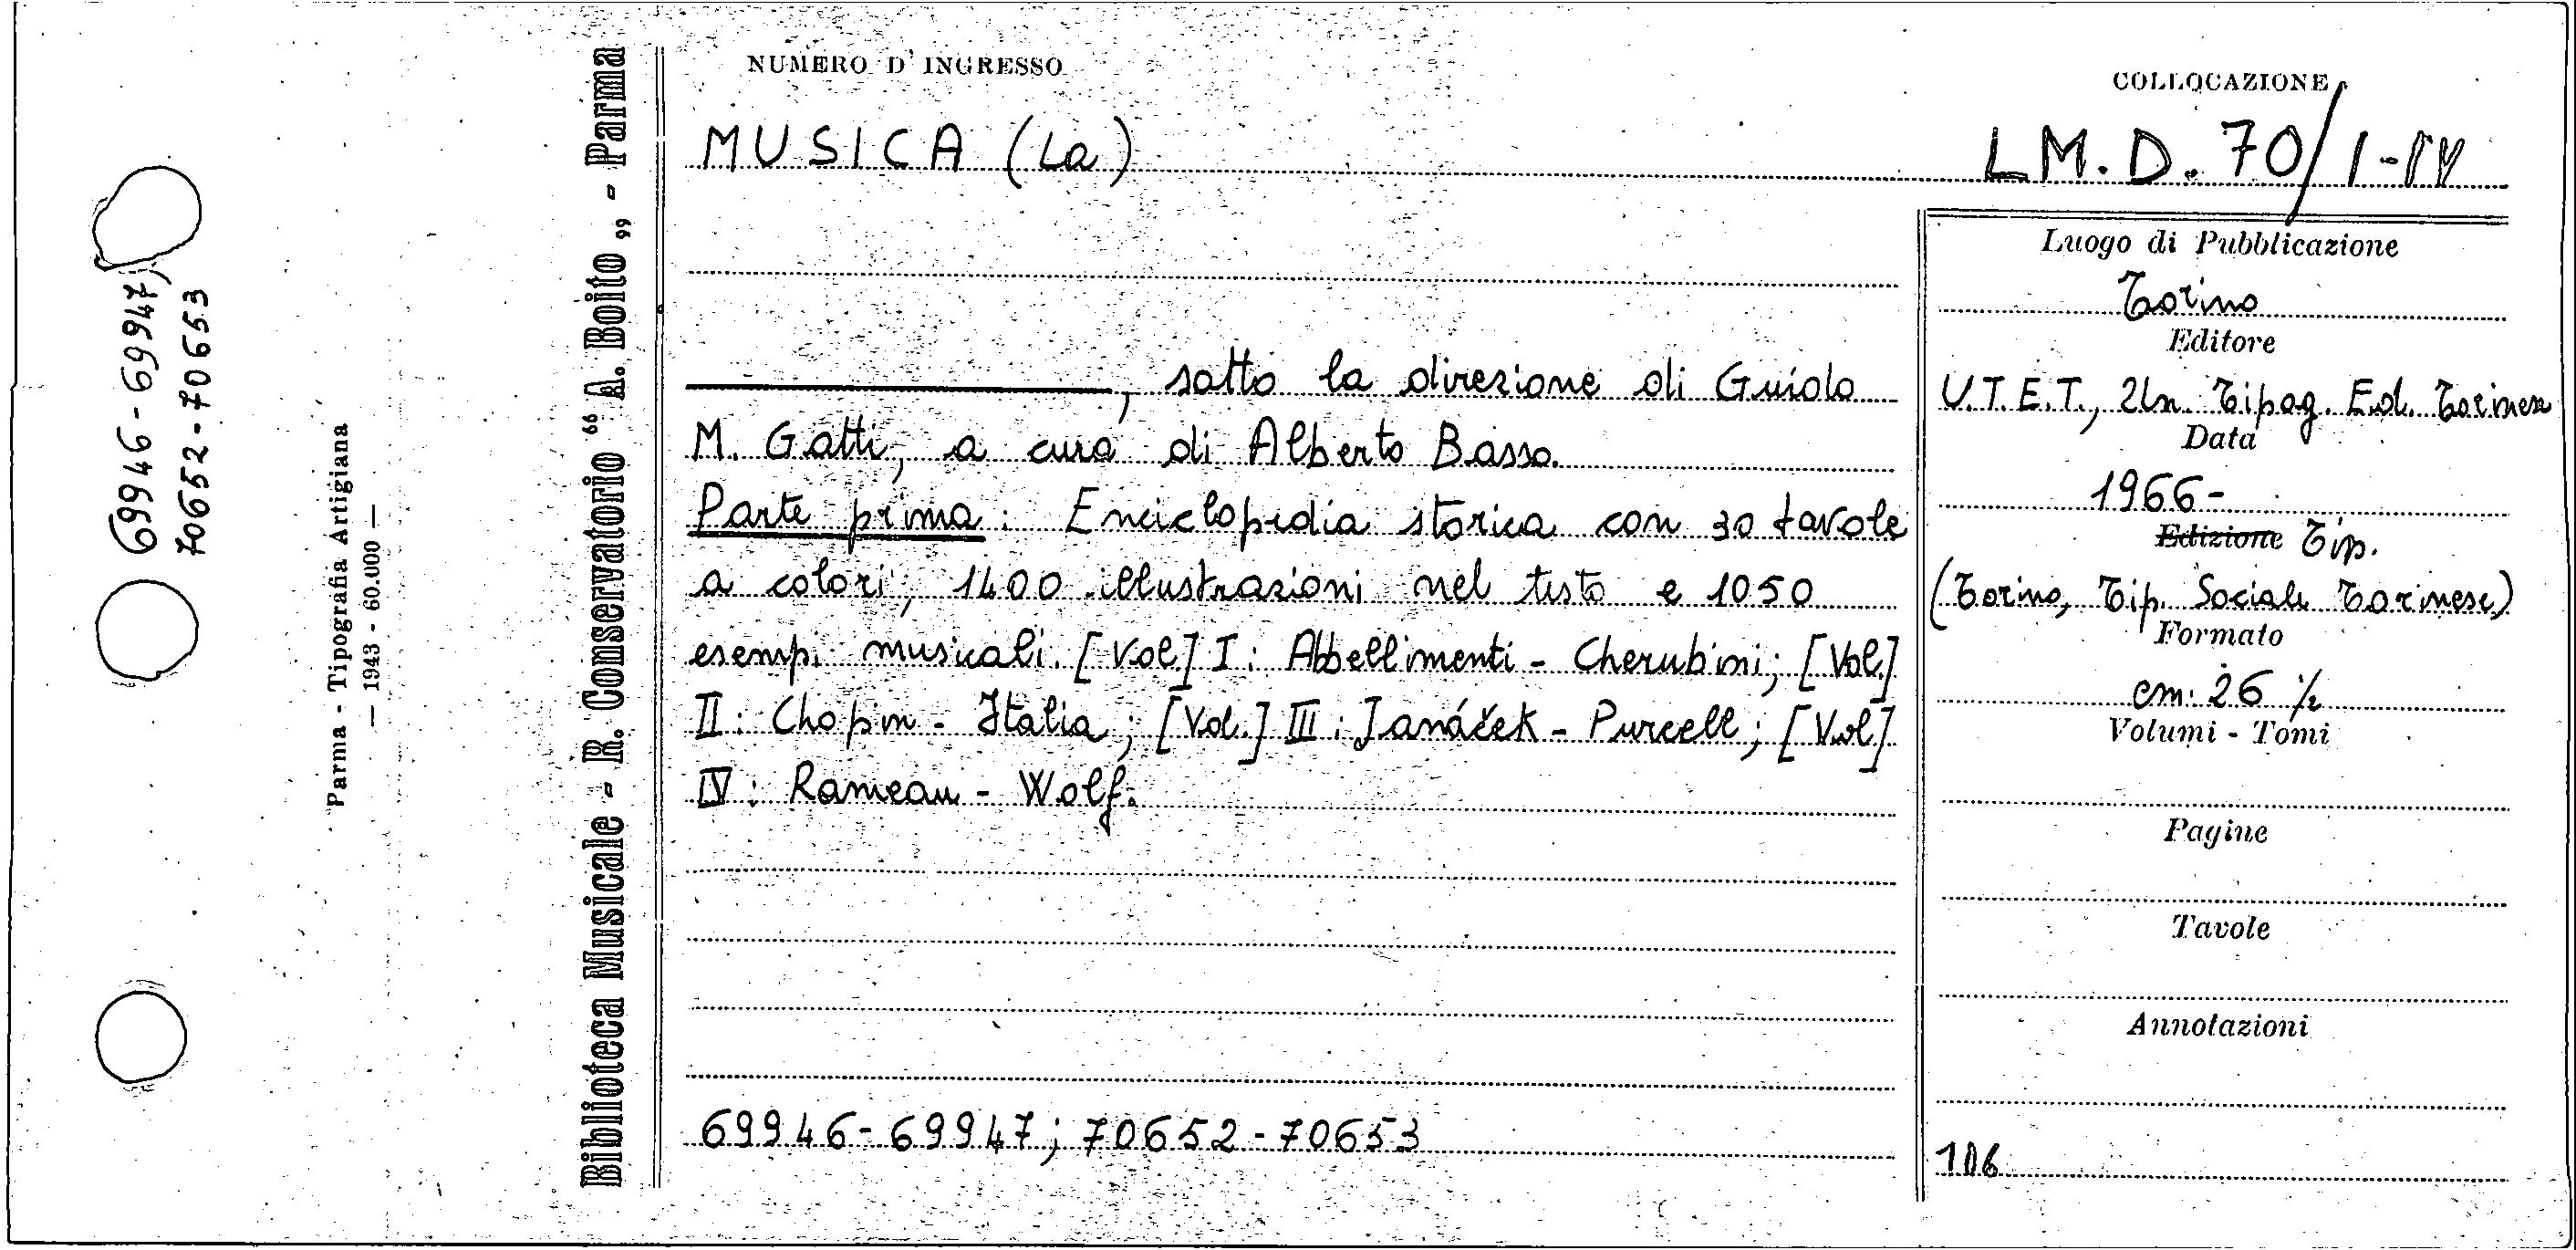 69946-69947;
70652-70653
Parma - Tipografia Artigiana
— 1943 - 60.000 —
Biblioteca Musicale - R. Conservatorio “ A. Boito „ - Parma
NUMERO D' INGRESSO
COLLOCAZIONE
MUSICA (La)
LM. D. 70/I-IV
, sotto la direzione di Guido
M. Gatti, a cura di Alberto Basso.
Parte prima: Enciclopedia storica con 30 tavole
a colori, 1400 illustrazioni nel testo e 1050
esempi musicali. [Vol.] I: Abbellimenti - Cherubini; [Vol.]
II: Chopin - Italia; [Vol.] III: Janáček - Purcell; [Vol.]
IV: Rameau - Wolf.
69946-69947; 70652-70653
Luogo di Pubblicazione
Torino
Editore
U.T.E.T., Un. Tipog. Ed. Torinese
Data
1966-
Edizione Tip.
(Torino, Tip. Sociale Torinese)
Formato
cm. 26 ½
Volumi - Tomi
Pagine
Tavole
Annotazioni
106